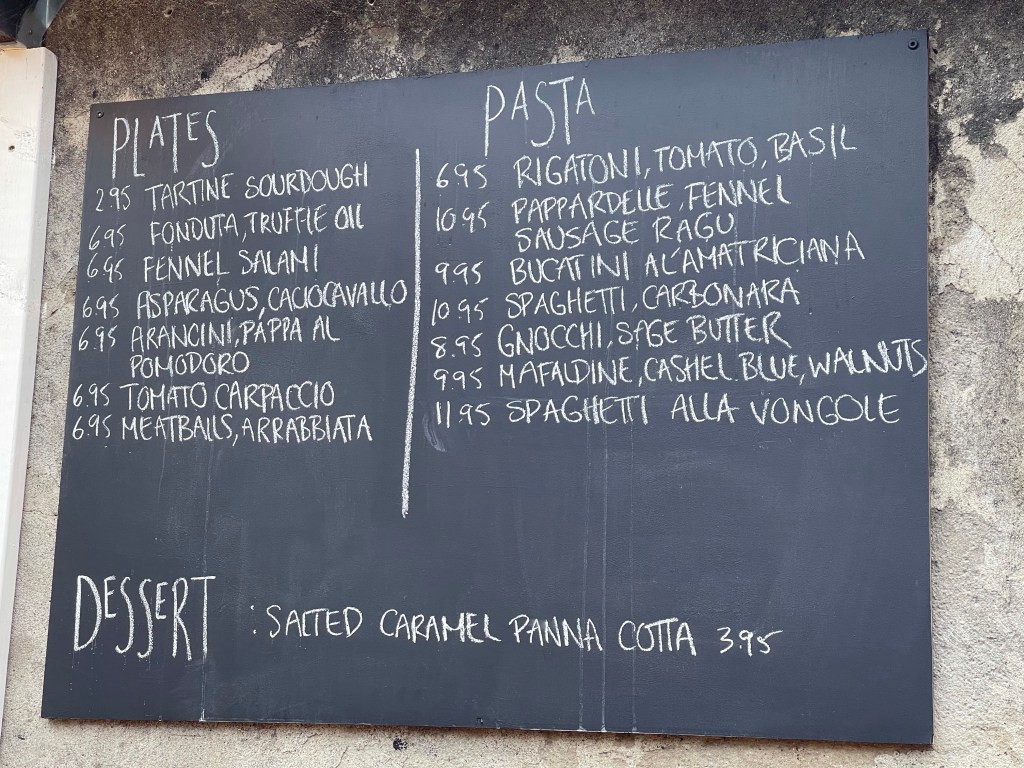 PLATES
2.95 TARTINE SOURDOUGH
6.95 FONDUTA, TRUFFLE OIL
6.95 FENNEL SALAMI
6.95 ASPARAGUS, CACIOCAVALLO
6.95 ARANCINI, PAPPA AL
POMODORO
6.95 TOMATO CARPACCIO
6.95 MEATBALLS, ARRABBIATA
PASTA
6.95 RIGATONI, TOMATO, BASIL
10.95 PAPPARDELLE, FENNEL
SAUSAGE RAGU
9.95 BUCATINI AL'AMATRICIANA
10.95 SPAGHETTI, CARBONARA
8.95 GNOCCHI, SAGE BUTTER
9.95 MAFALDINE, CASHEL BLUE, WALNUTS
11.95 SPAGHETTI ALLA VONGOLE
DESSERT : SALTED CARAMEL PANNA COTTA 3.95